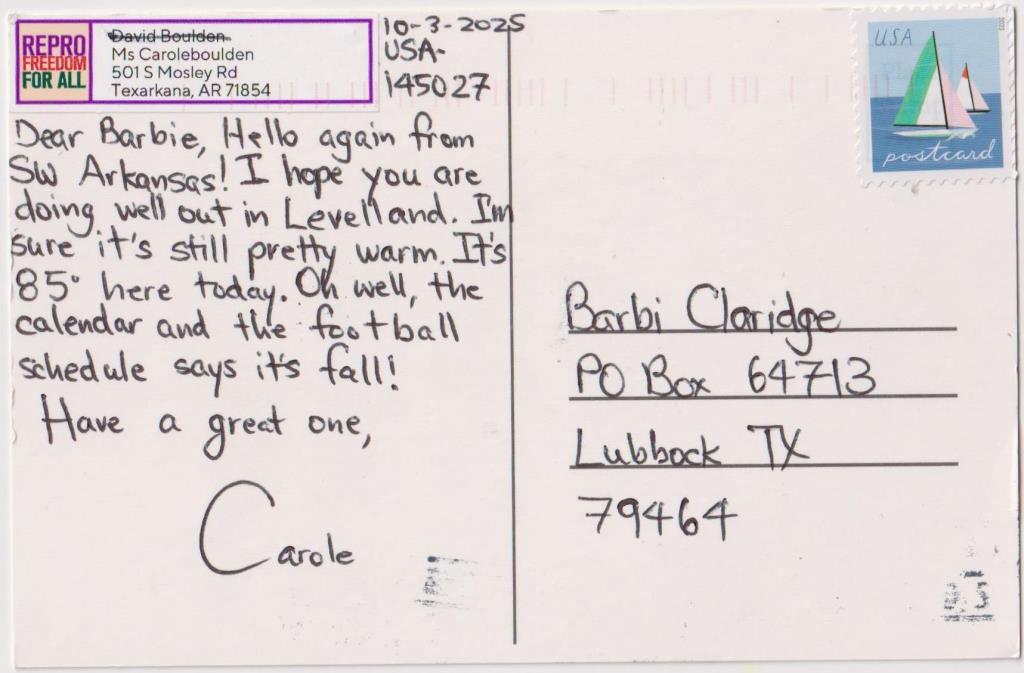 REPRO
FREEDOM
FOR ALL
David Boulden
Ms Caroleboulden
501 S Mosley Rd
Texarkana, AR 71854
10-3-2025
USA-
145027
Dear Barbie, Hello again from
SW Arkansas! I hope you are
doing well out in Levelland. I'm
sure it's still pretty warm. It's
85° here today. Oh well, the
calendar and the football
schedule says it's fall!
Have a great one,
Carole
USA
postcard
Barbi Claridge
PO Box 64713
Lubbock TX
79464